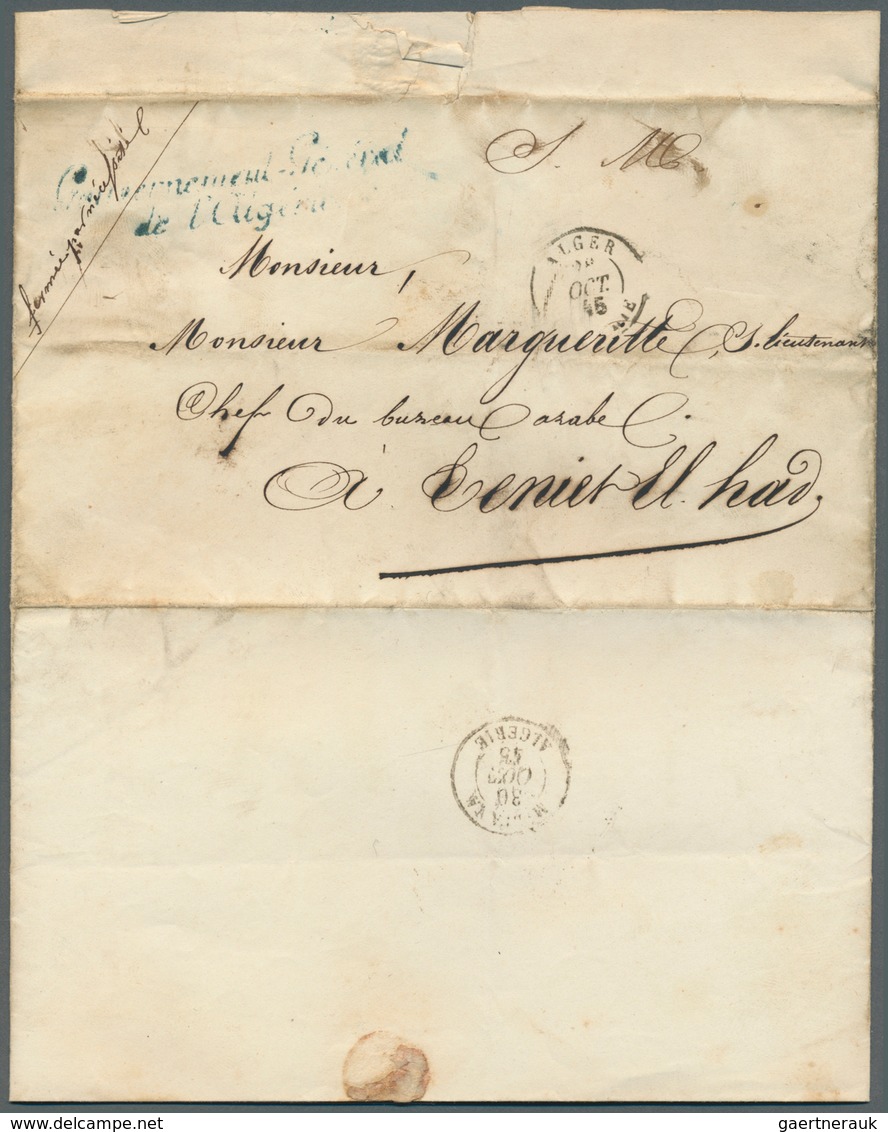 fermé par nécessité
S. M.
Gouvernement Général
de l'Algérie
ALGER
OCT.
45
Monsieur,
Monsieur Margueritte, S. lieutenant
Chef du bureau arabe
à Teniet El. had.
MILIANA
30
OCT.
45
ALGERIE
gaertnerauk